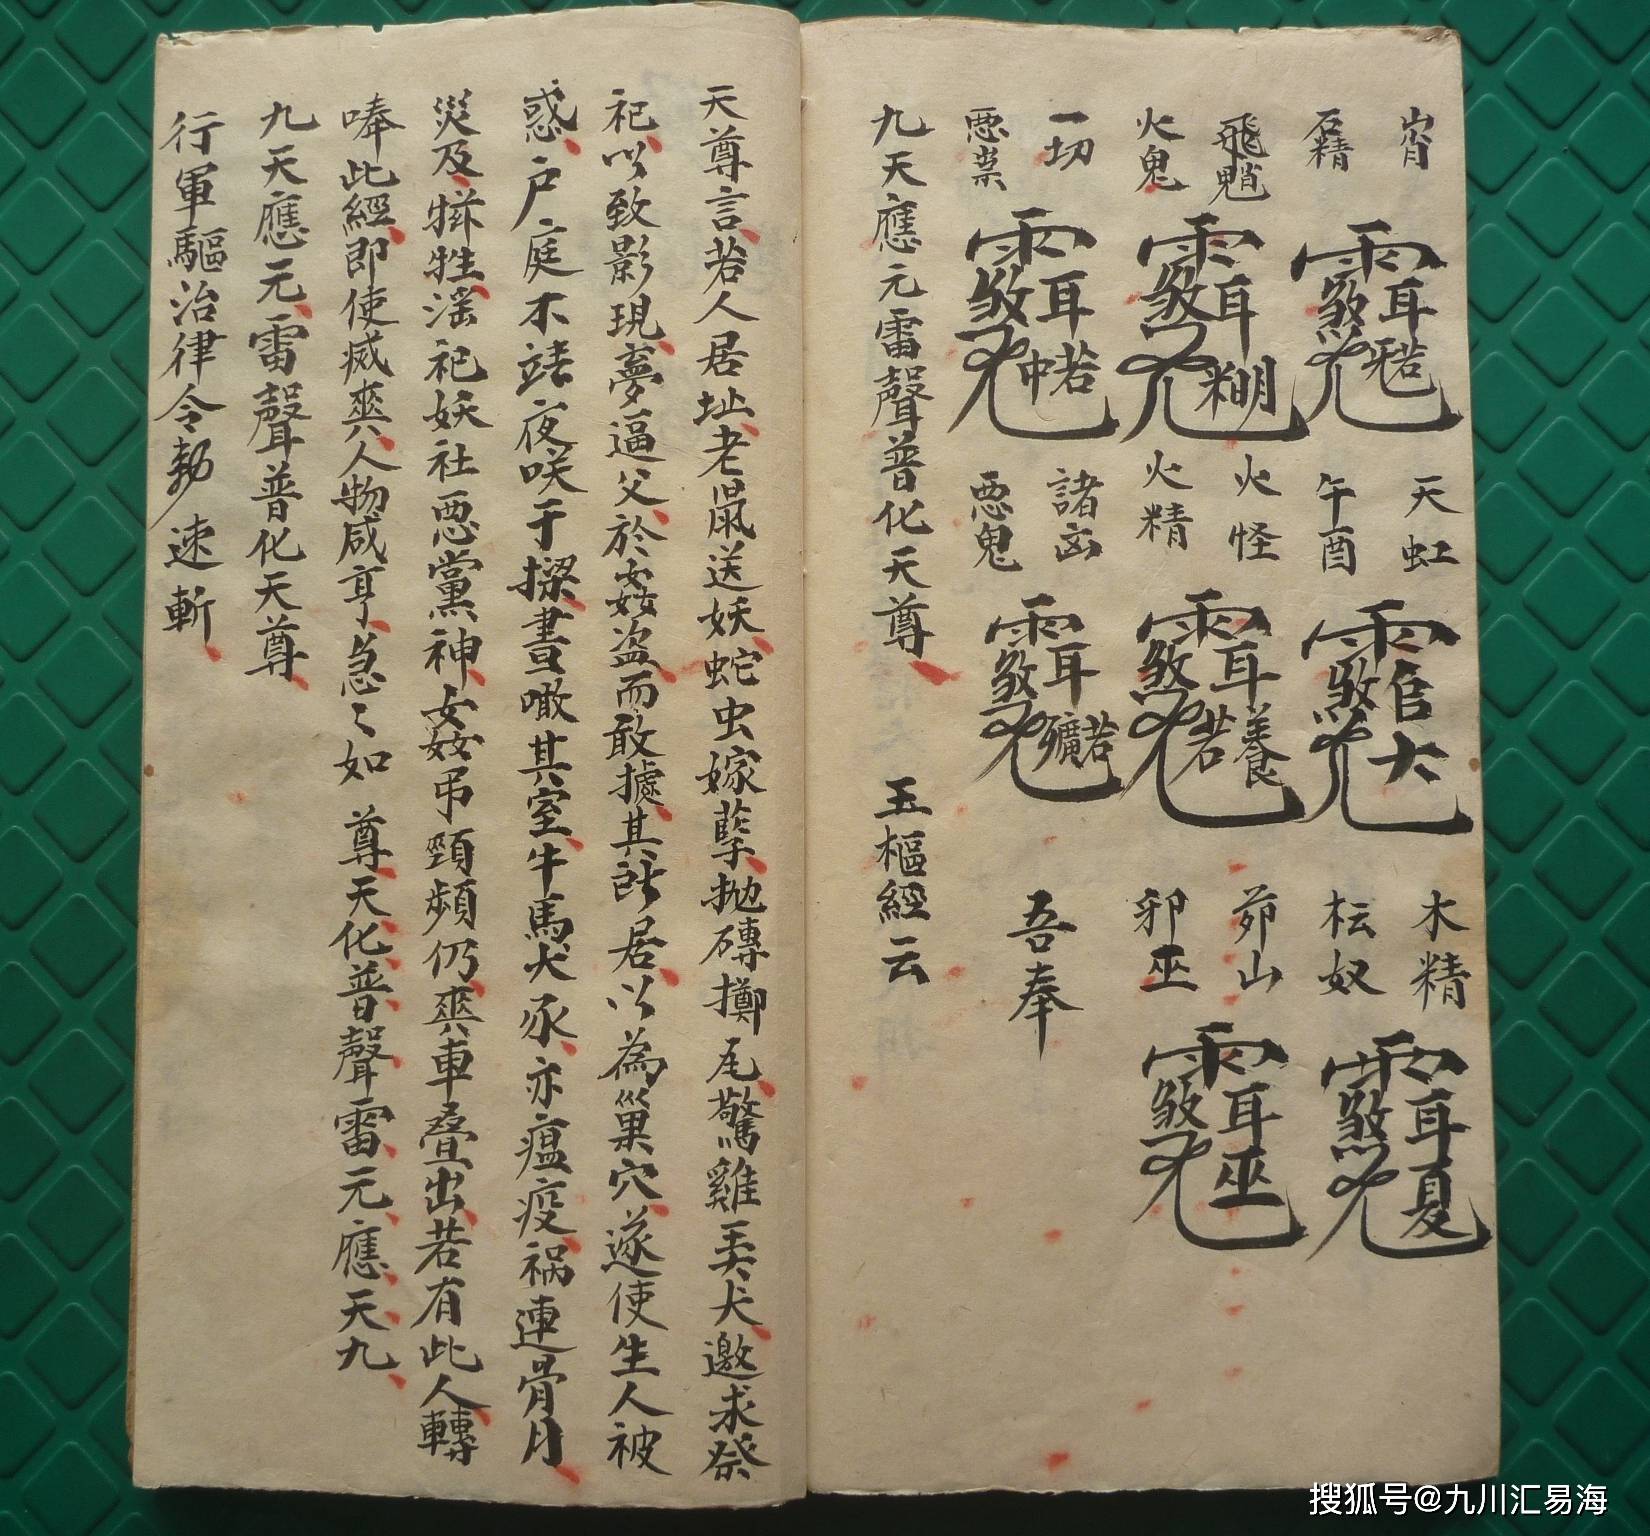 天虹 木精
石精 午酉 枟奴
飛魈 火怪 茆山
火鬼 火精 邪巫
一切 諸凶
惡祟 惡鬼
吾奉
九天應元雷聲普化天尊 玉樞經云
天尊言若人居址老鼠送妖蛇虫嫁孽抛磚擲瓦驚雞弄犬邀求祭
祀以致影現夢逼父於姦盗而敢據其所居以為巢穴遂使生人被
惑户庭不靖夜咲于樑晝瞰其室牛馬犬豕亦瘟疫祸連骨月
災及牲滛祀妖社惡黨神姦吊頸頻仍喪車叠出若有此人轉
唪此經即使喪人物咸亨急〻如 尊天化普聲雷元應天九
九天應元雷聲普化天尊
行軍驅治律令勅速斬
搜狐号@九川汇易海